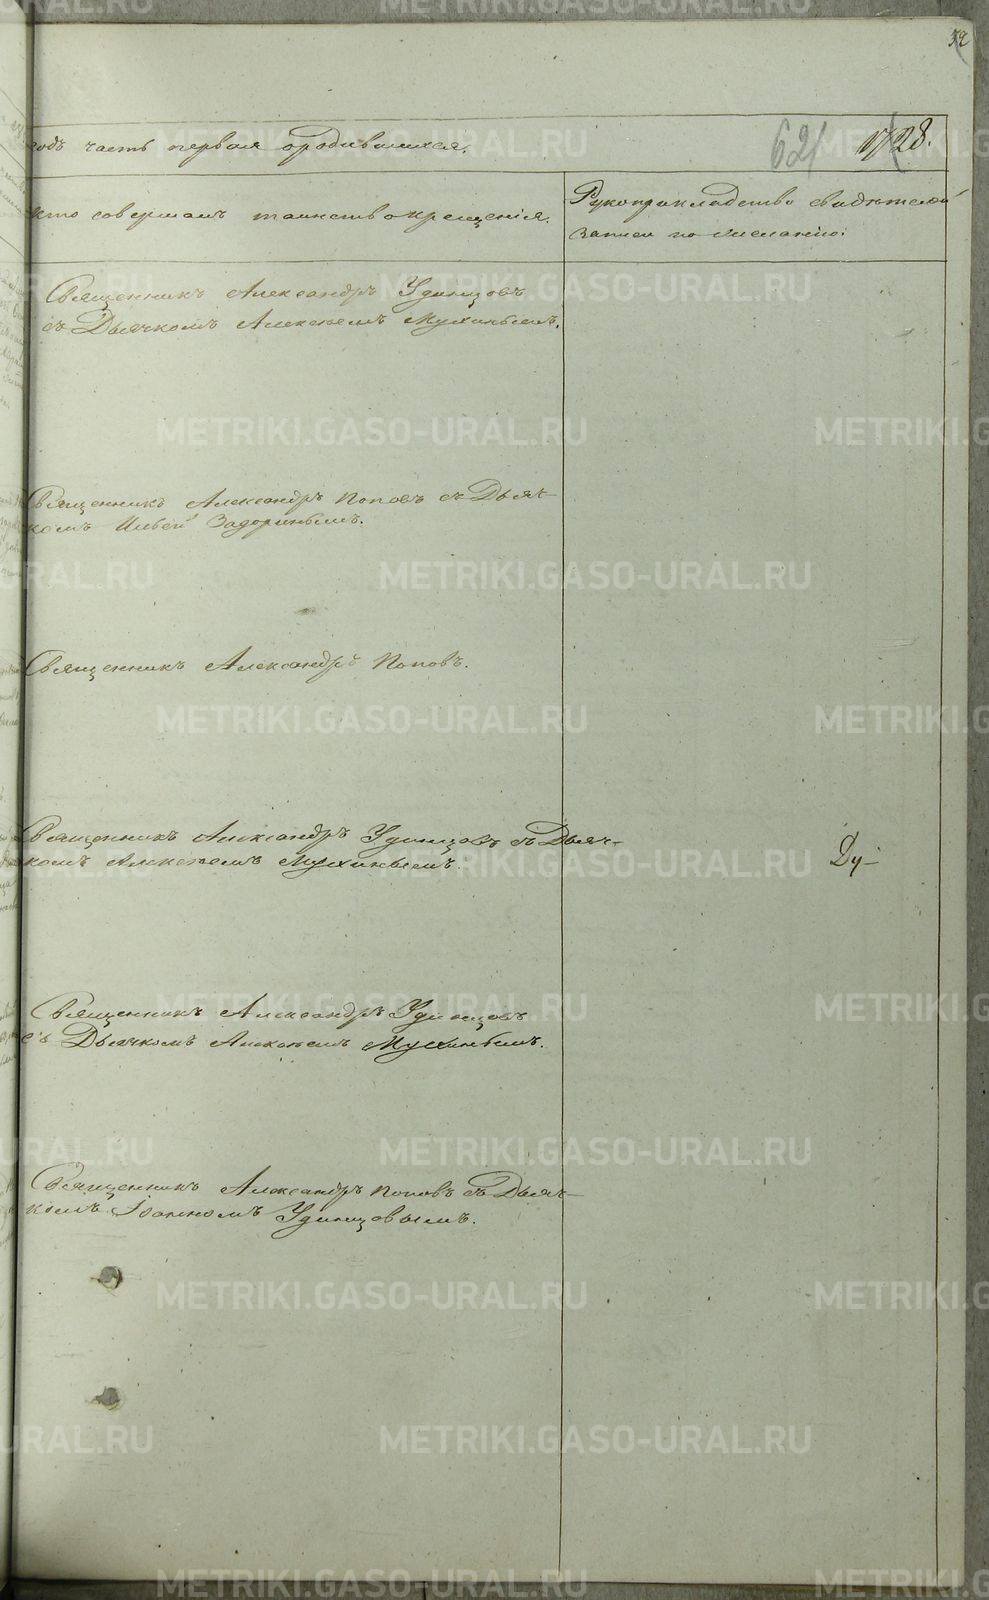 годъ часть первая ородившихся.
621
1728.
Кто совершалъ таинство крещенія.
Рукоприкладство свидѣтелей
записи по желанію:
Священникъ Александръ Удинцовъ
съ Дьячкомъ Алексѣемъ Мухинымъ.
Священникъ Александръ Поповъ съ Дьяч-
комъ Ильей Задоринымъ.
Священникъ Александръ Поповъ.
Священникъ Александръ Удинцовъ съ Дьяч-
комъ Алексѣемъ Мухинымъ.
Ду-
Священникъ Александръ Удинцовъ
съ Дьячкомъ Алексѣемъ Мухинымъ.
Священникъ Александръ Поповъ съ Дьяч-
комъ Іоанномъ Удинцовымъ.
METRIKI.GASO-URAL.RU